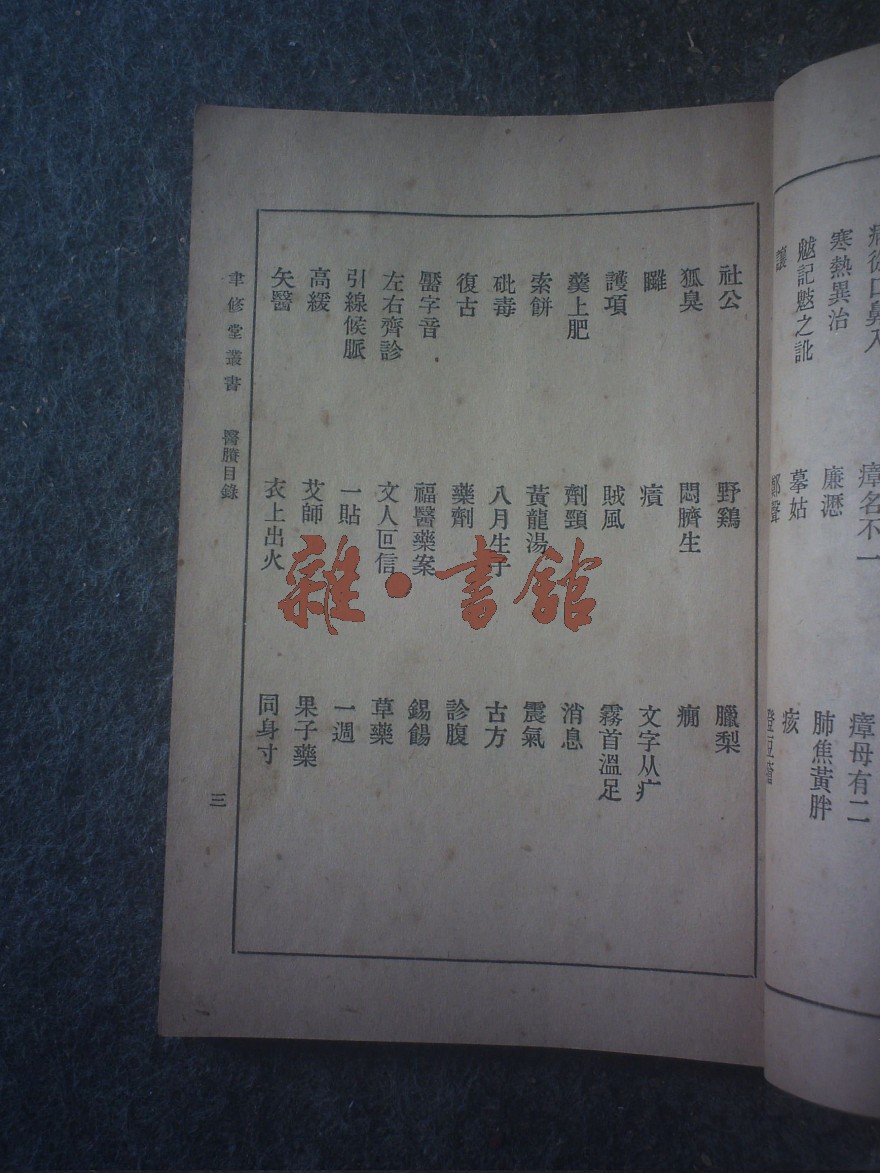 口鼻入 瘴名不一 瘴母有二
寒熱異治 廉瀝 肺焦黃胖
之訛 摹姑 痎
社公 野鷄 臘梨
狐臭 悶臍生 癇
文字从疒
護項 賊風 霧首溫足
羹上肥 劑頸 消息
索餅 黃龍湯 震氣
砒毒 八月生子 古方
復古 藥劑 診腹
字音 福醫藥案 錫餳
左右齊診 文人叵信 草藥
引線候脈 一貼 一週
高緩 艾師 果子藥
矢醫 衣上出火 同身寸
聿修堂叢書 醫賸目錄 三
雜·書館